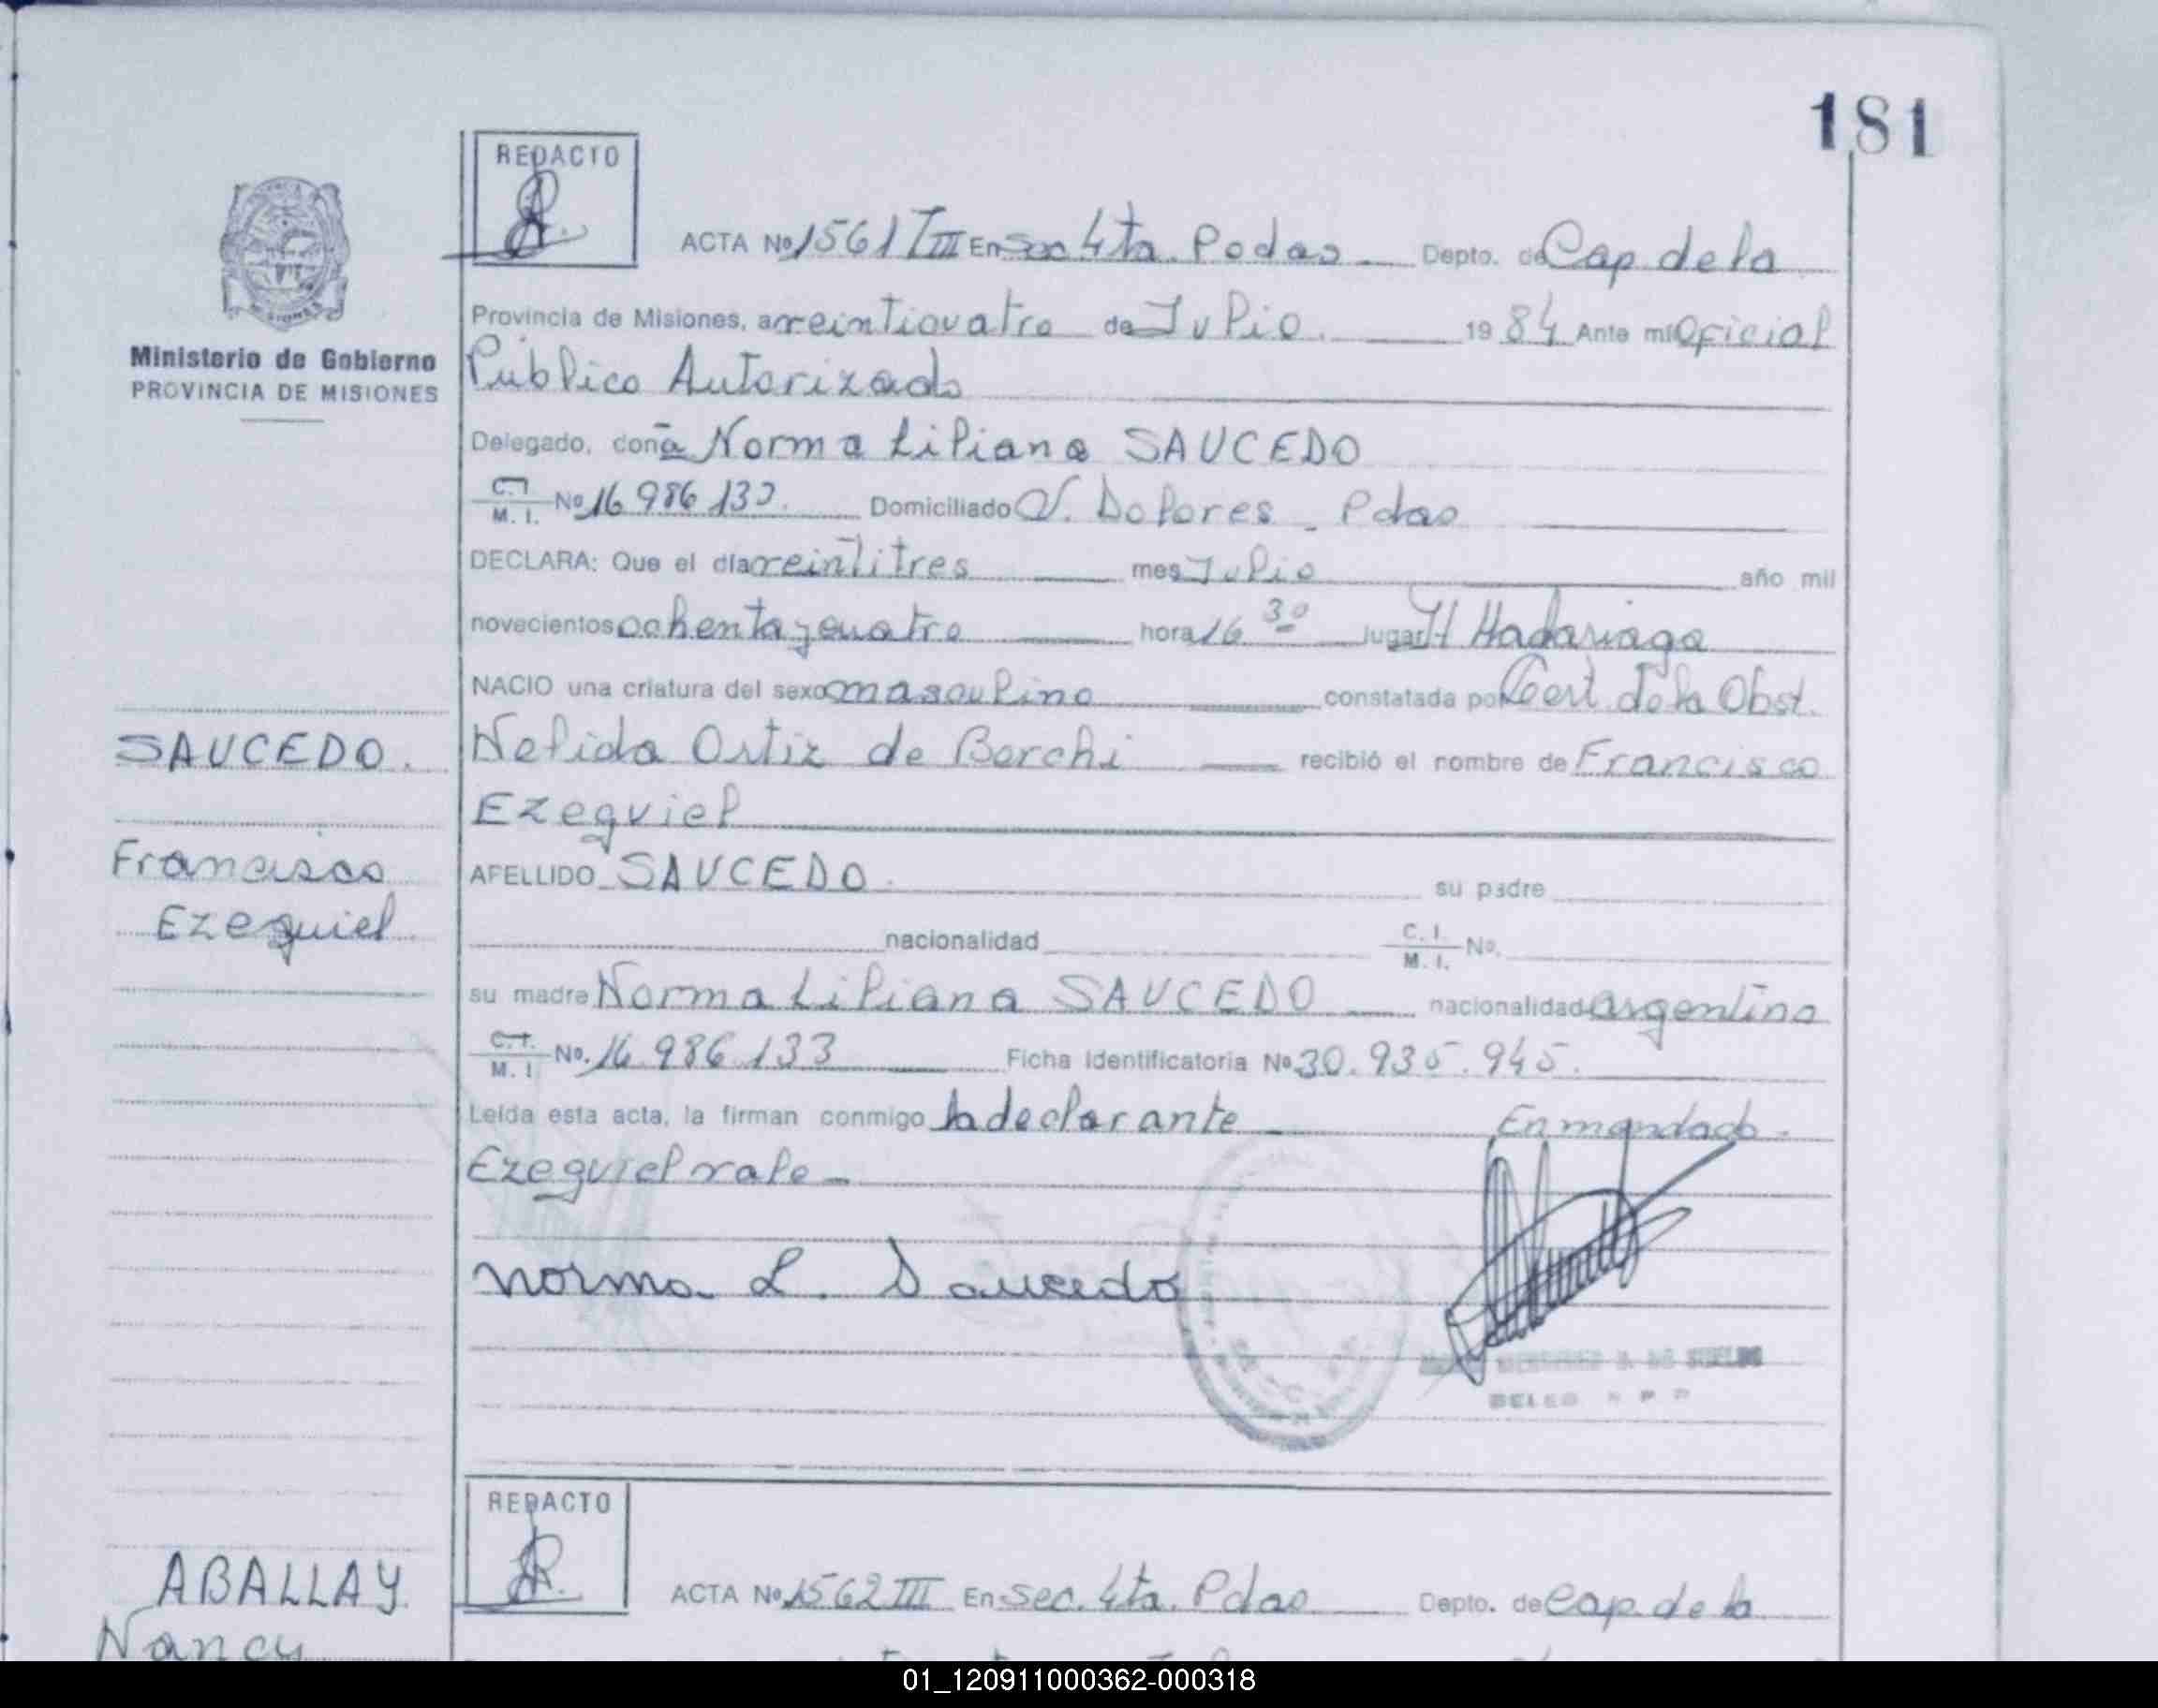 181
REDACTO
ACTA Nº 1561 TIII En Sec 4ta. Podas Depto. de Cap de la
Provincia de Misiones, a veinticuatro de Julio. 1984 Ante mi Oficial
Ministerio de Gobierno
PROVINCIA DE MISIONES
Público Autorizado
Delegado, doña Norma Liliana SAUCEDO
C.I. M. I. Nº 16 986 133. Domiciliado V. Dolores - Pdas
DECLARA: Que el día veintitres mes Julio año mil
novecientos ochenta y cuatro hora 16 30 lugar H Madariaga
NACIO una criatura del sexo masculino constatada por Cert de la Obst.
SAUCEDO.
Nelida Ortiz de Borchi recibió el nombre de Francisco
Ezequiel
Francisco
Ezequiel
APELLIDO SAUCEDO. su padre
nacionalidad C. I. M. I. Nº.
su madre Norma Liliana SAUCEDO nacionalidad argentina
C. I. M. I Nº. 16.986.133 Ficha Identificatoria Nº 30.935.945.
Leída esta acta, la firman conmigo la declarante Enmendado-
Ezequiel vale-
Norma L. Saucedo
REDACTO
ACTA Nº 1562 III En Sec. 4ta. Pdas Depto. de Cap. de la
ABALLAY
Nancy
01_120911000362-000318